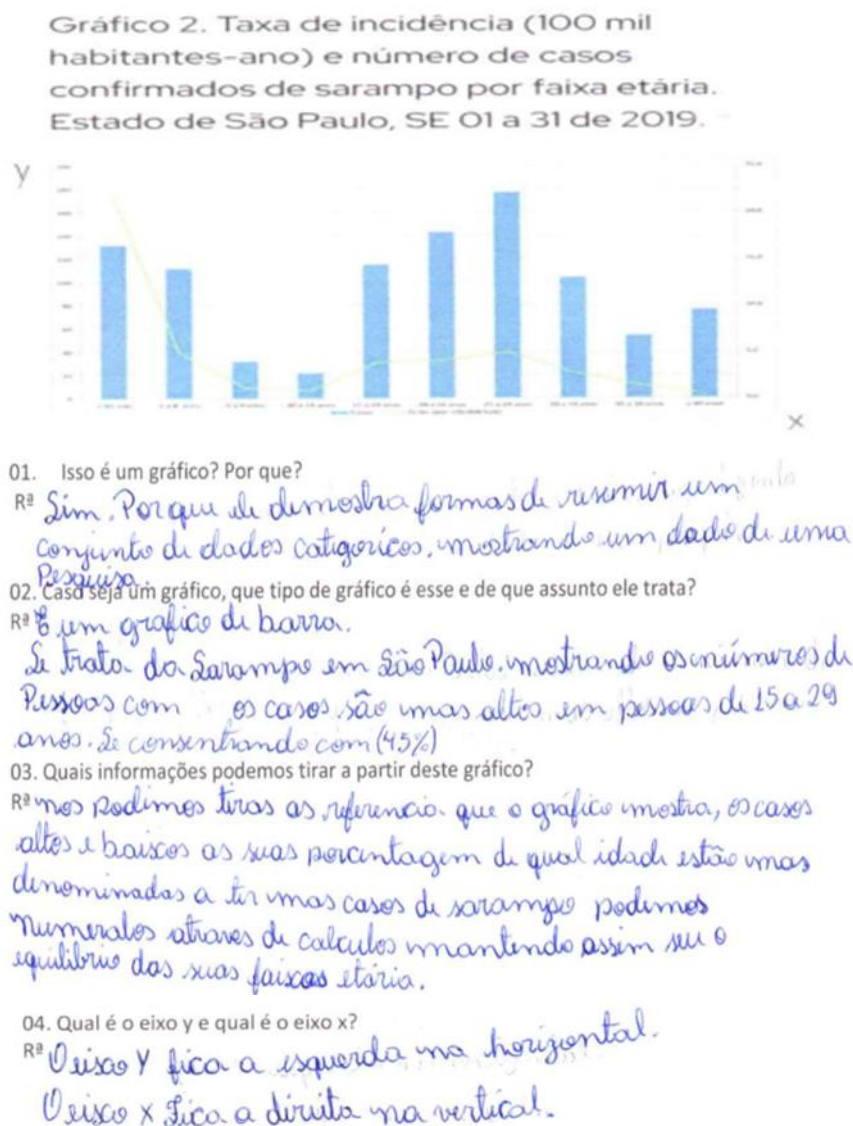 Gráfico 2. Taxa de incidência (100 mil
habitantes-ano) e número de casos
confirmados de sarampo por faixa etária.
Estado de São Paulo, SE 01 a 31 de 2019.
y
x
01. Isso é um gráfico? Por que?
Rª Sim. Porque ele demostra formas de resumir um
conjunto de dados categoricos, mostrando um dado de uma
Pesquisa.
02. Caso seja um gráfico, que tipo de gráfico é esse e de que assunto ele trata?
Rª É um grafico de barra.
Se trata da Sarampo em São Paulo. mostrando os números de
Pessoas com os casos são mas altos em pessoas de 15 a 29
anos. Se consentrando com (45%)
03. Quais informações podemos tirar a partir deste gráfico?
Rª nos Podimos tiras as referencia que o gráfico mostra, os casos
altos e baixos as suas porcentagem de qual idade estão mas
denominadas a ter mas casos de sarampo podemos
numeralos atraves de calculos mantendo assim seu o
equilibrio das suas faixas etária.
04. Qual é o eixo y e qual é o eixo x?
Rª O eixo Y fica a esquerda na horizontal.
O eixo x Fica a direita na vertical.